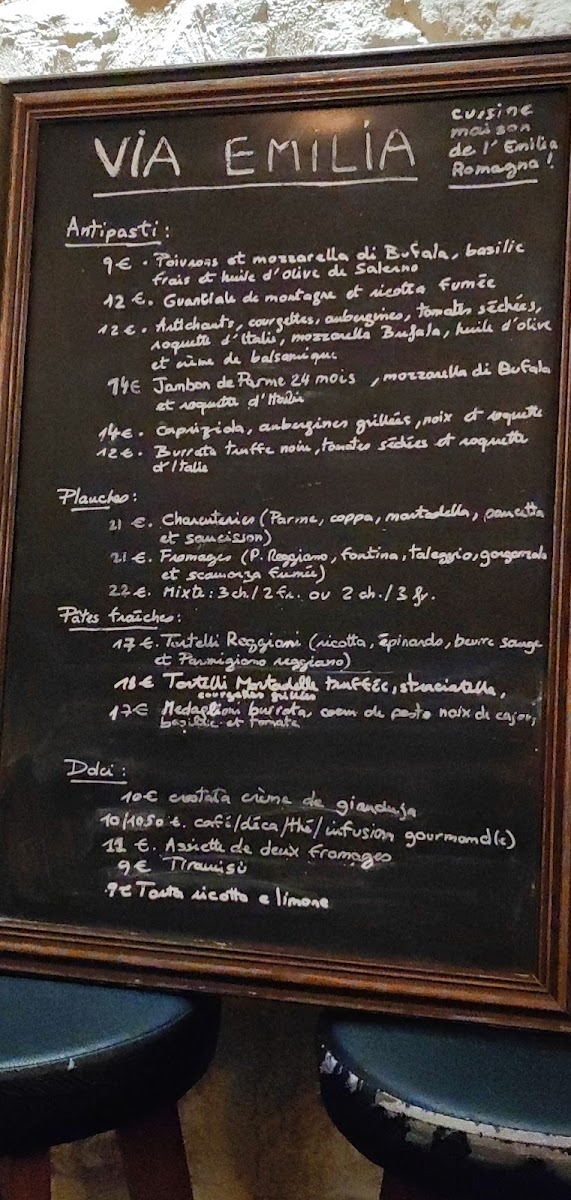 VIA EMILIA
cuisine
maison
de l'Emilia
Romagna!
Antipasti:
9€. Poivrons et mozzarella di Bufala, basilic
frais et huile d'olive de Salerno
12 €. Guanciale de montagne et ricotta fumée
12€. Artichauts, courgettes, aubergines, tomates séchées,
roquette d'Italie, mozzarella Bufala, huile d'olive
et crème de balsamique
14€ Jambon de Parme 24 mois , mozzarella di Bufala
et roquette d'Italie
14€. aubergines grillées, noix et roquette
12€. Burrata truffe noire, tomates séchées et roquette
d'Italie
Planches:
21 €. Charcuteries (Parme, coppa, mortadella, pancetta
et saucisson)
21 €. Fromages (P. Reggiano, fontina, taleggio, gorgonzola
et scamorza fumée)
22€. Mixte: 3 ch./2 fr. ou 2 ch./3 fr.
Pâtes fraîches:
17€. Tortelli Reggiani (ricotta, épinards, beurre sauge
et Parmigiano reggiano)
18€ Tortelli Mortadelle truffée, straciatella,
courgettes grillées
17€ Medaglioni burrata, coeur de pesto noix de cajou,
basilic et tomate
Dolci:
10€ crostata crème de gianduja
10/10.50 €. café/déca/thé/infusion gourmand(e)
11 €. Assiette de deux fromages
9€ Tiramisù
9€ Torta ricotta e limone